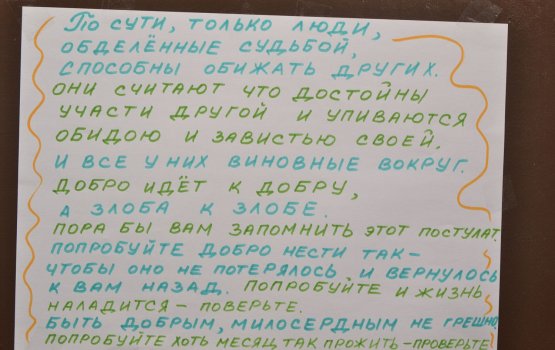 По сути, только люди,
обделённые судьбой,
способны обижать других.
Они считают что достойны
участи другой и упиваются
обидою и завистью своей.
И все у них виновные вокруг.
Добро идёт к добру,
а злоба к злобе.
Пора бы вам запомнить этот постулат
Попробуйте добро нести так –
чтобы оно не потерялось и вернулось
к вам назад. Попробуйте и жизнь
наладится – поверьте.
Быть добрым, милосердным не грешно
Попробуйте хоть месяц так прожить – проверьте